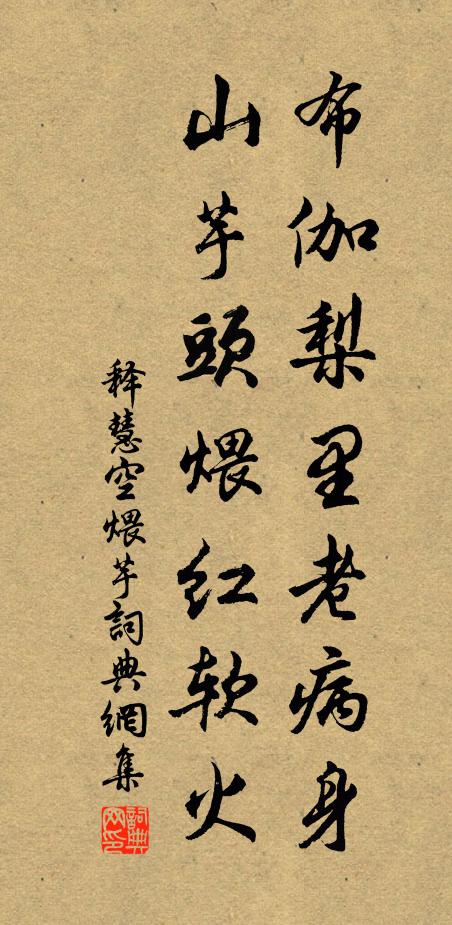 布伽梨里老病身
山芋頭煨红软火
释慧空煨芋詞典網集
詞典网印